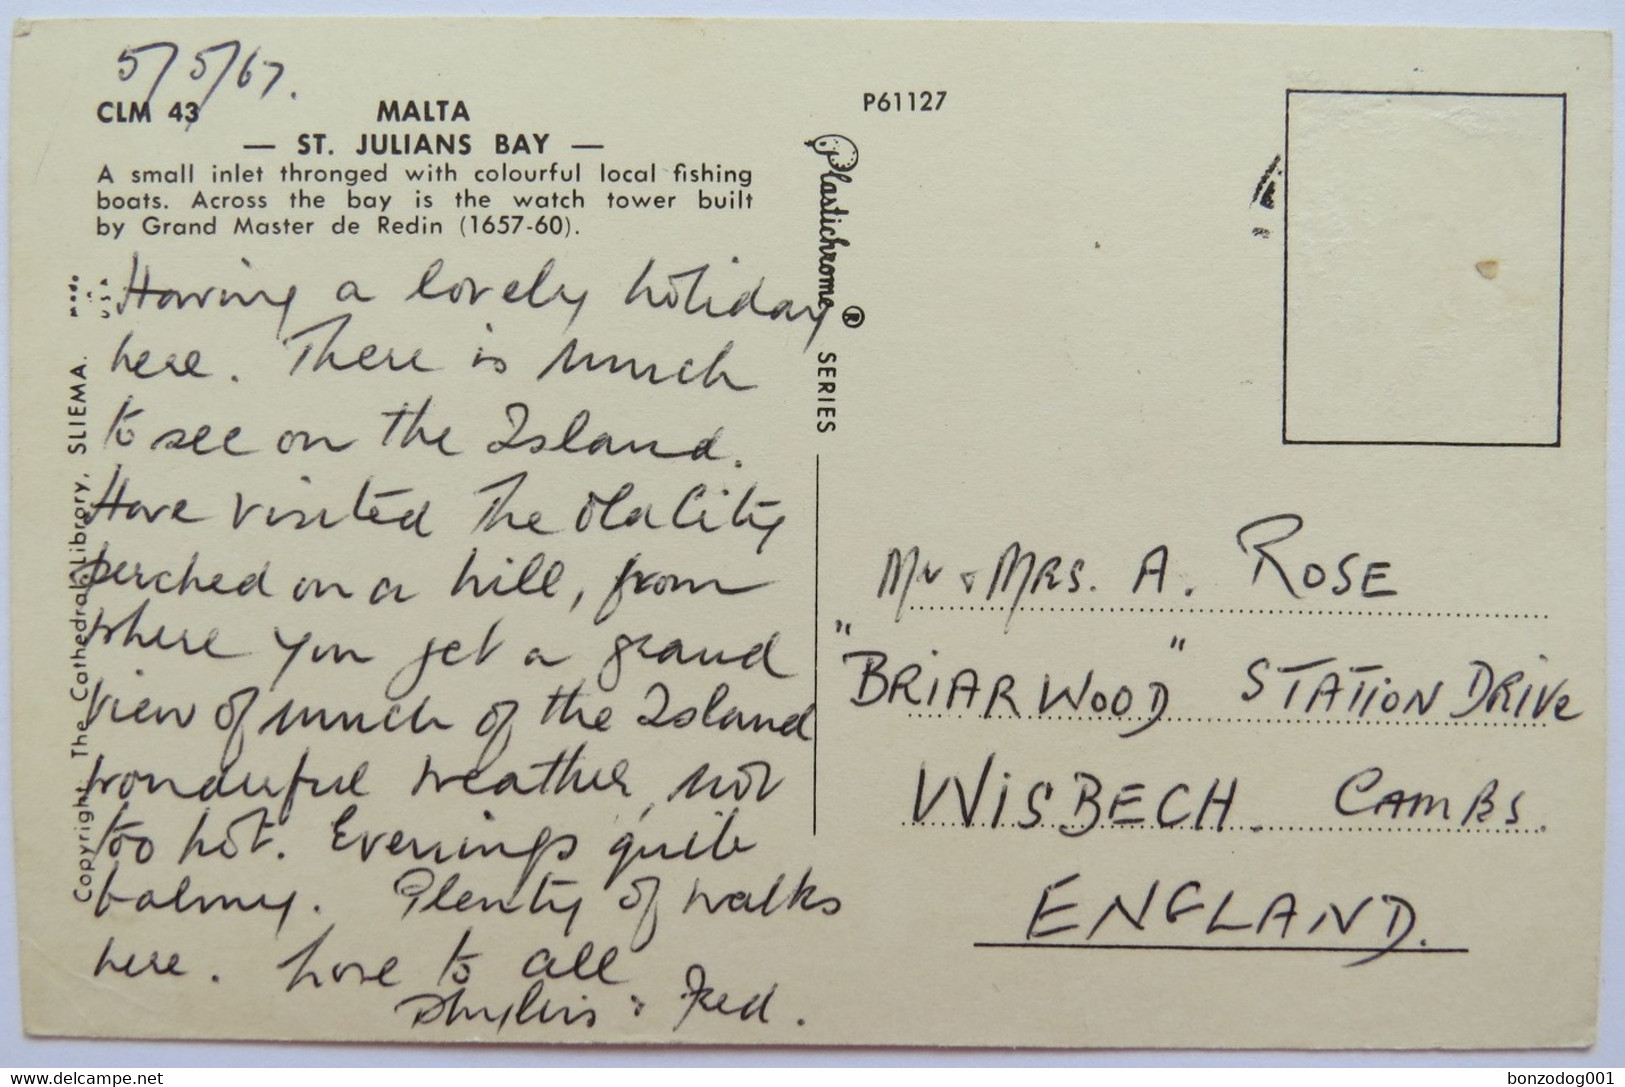 5/5/67.
CLM 43 MALTA
— ST. JULIANS BAY —
A small inlet thronged with colourful local fishing
boats. Across the bay is the watch tower built
by Grand Master de Redin (1657-60).
Having a lovely holiday
here. There is much
to see on the Island.
Have visited The Old City
perched on a hill, from
where you get a grand
view of much of the Island
wonderful weather, not
too hot. Evenings quite
balmy. Plenty of walks
here. Love to all
Phyllis & Fred.
Copyright: The Cathedral Library, SLIEMA. Made in U.S.A.
Plastichrome ® SERIES
P61127
Mr & Mrs. A. ROSE
"BRIARWOOD" STATION DRIVE
WISBECH. CAMBS.
ENGLAND.
bonzodog001